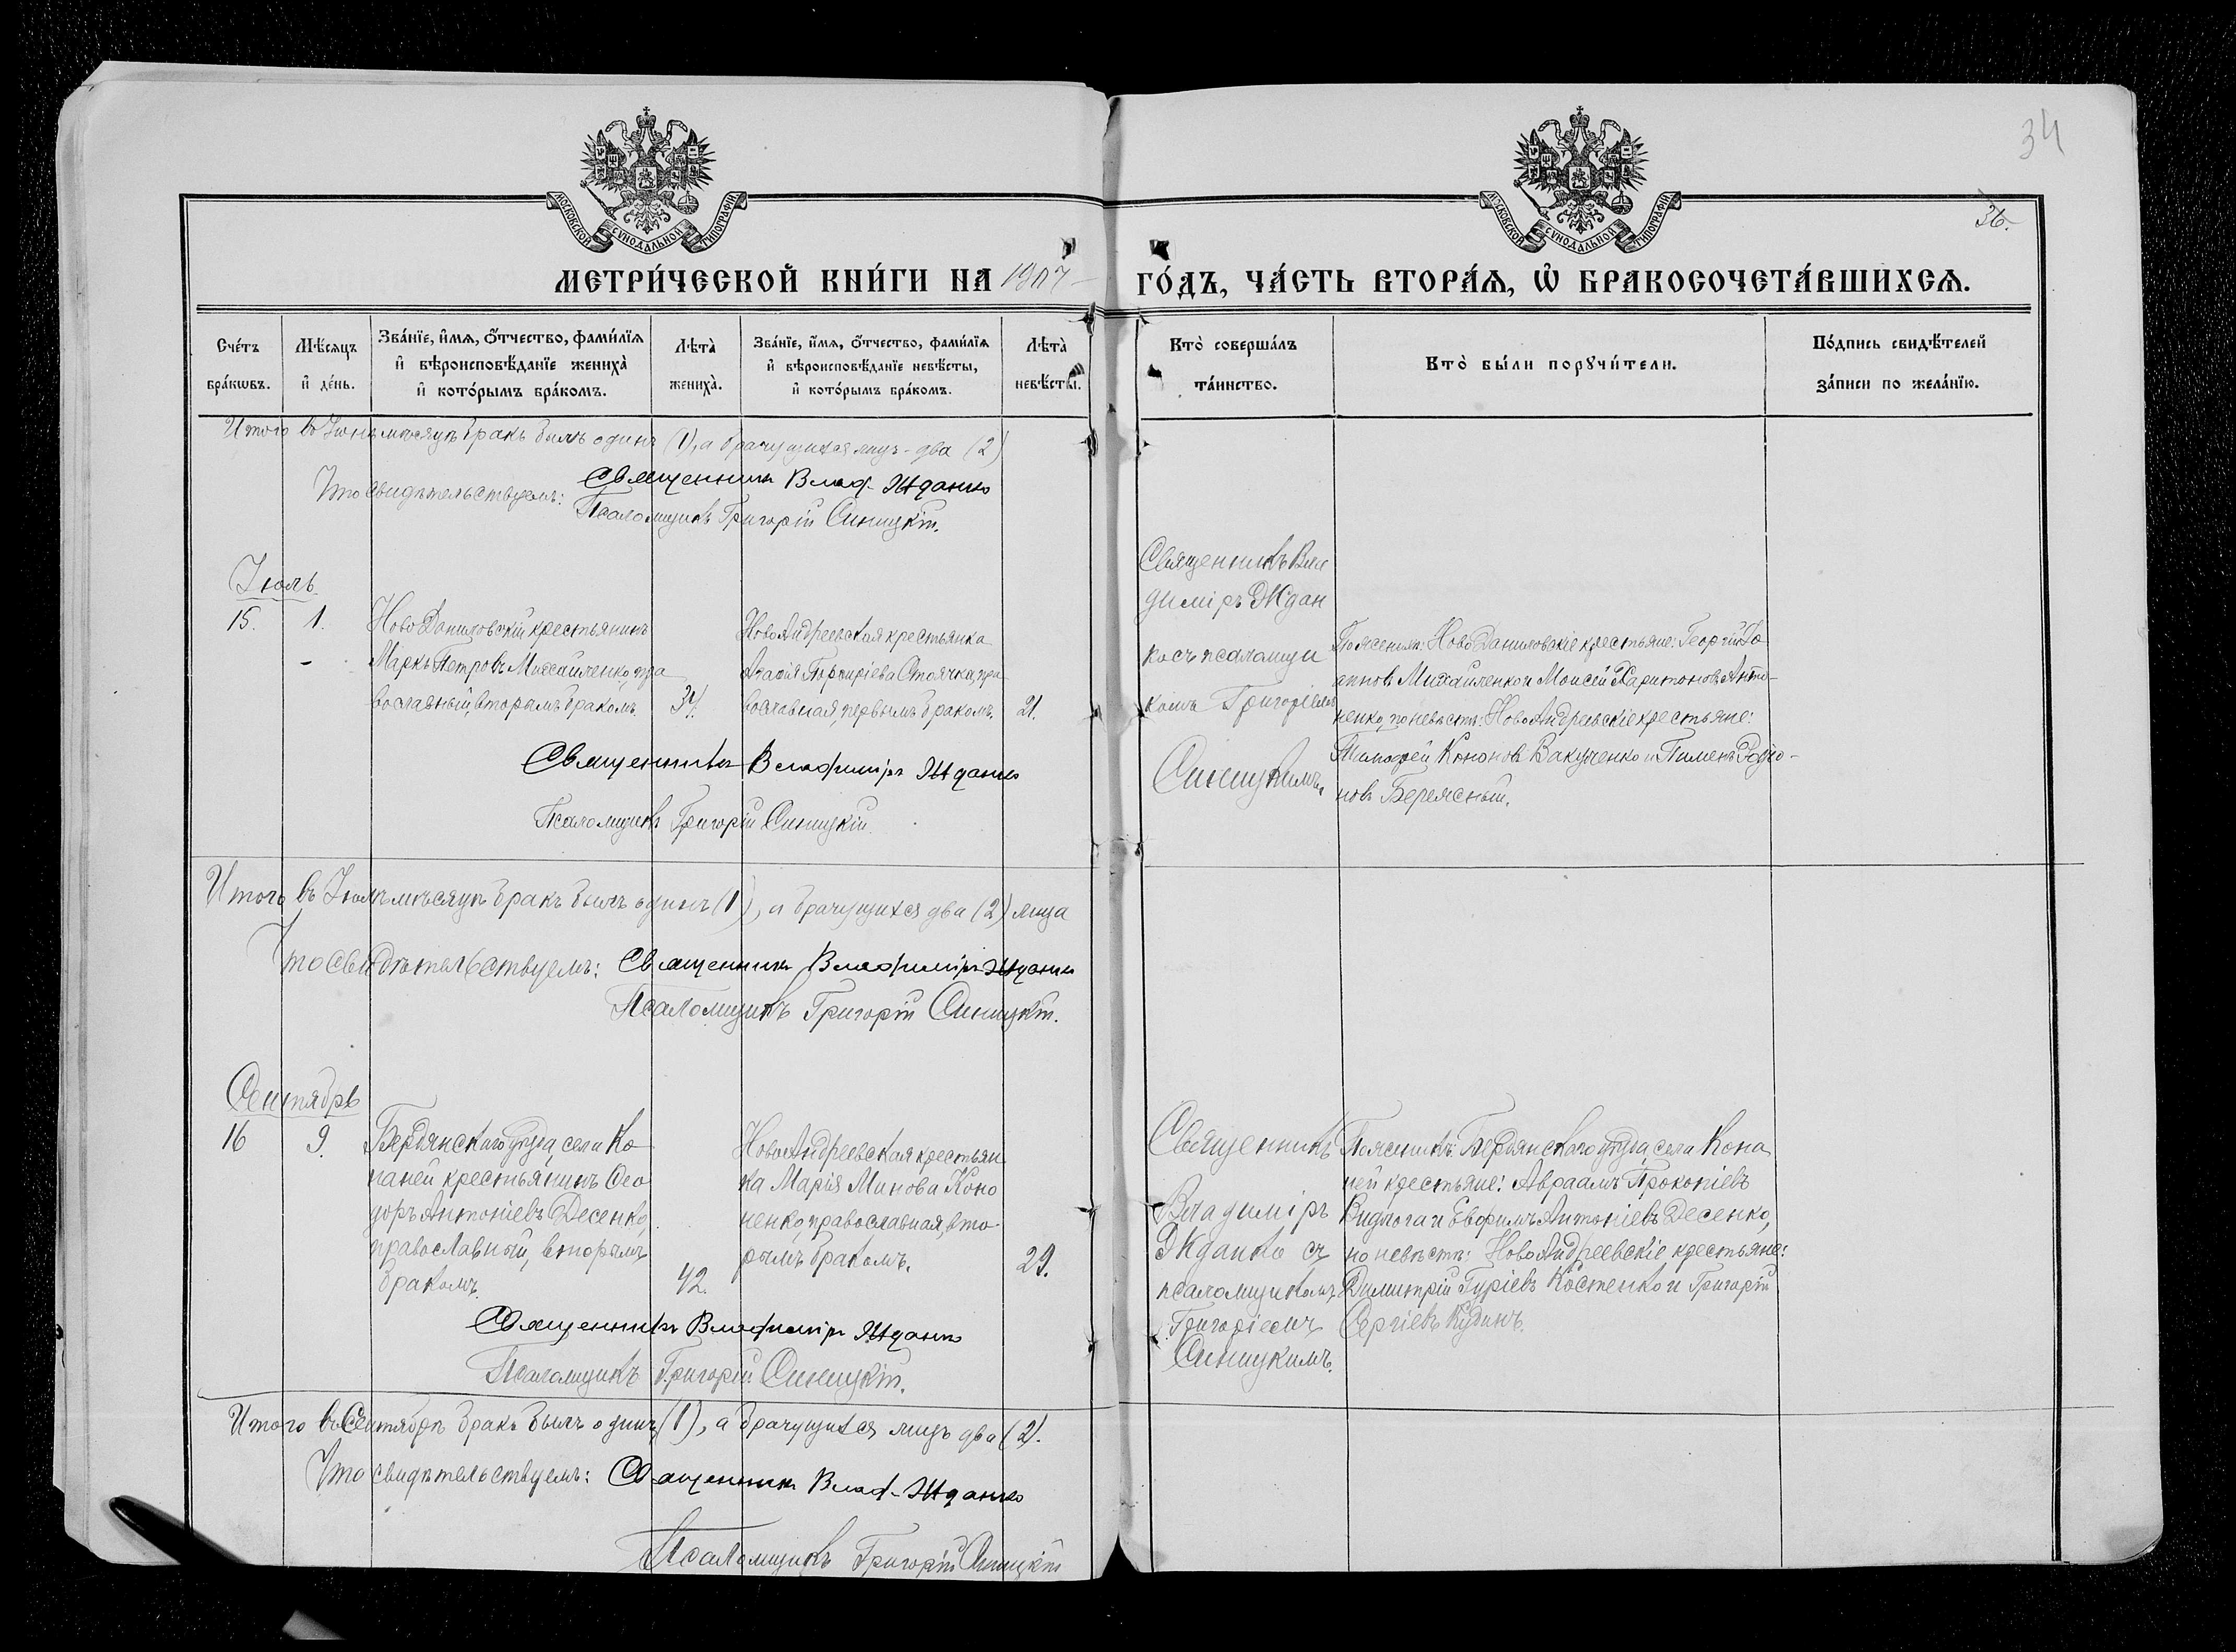 34
36.
МОСКОВСКОЙ СѴНОДАЛЬНОЙ ТИПОГРАФІИ
МОСКОВСКОЙ СѴНОДАЛЬНОЙ ТИПОГРАФІИ
МЕТРИ́ЧЕСКОЙ КНИ́ГИ НА 1907 ГО́ДЪ, ЧА́СТЬ ВТОРА́Ѧ, Ѡ҆ БРАКОСОЧЕТА́ВШИХСѦ.
Сче́тъ
бра́кѡвъ.
Мѣ́сяцъ
и҆ де́нь.
Зва́нїе, и҆́мѧ, ѻ҆́тчество, фами́лїѧ
и҆ вѣроисповѣ́данїе жениха̀
и҆ кото́рымъ бра́комъ.
Лѣта̀
жениха̀.
Зва́нїе, и҆́мѧ, ѻ҆́тчество, фами́лїѧ
и҆ вѣроисповѣ́данїе невѣ́сты,
и҆ кото́рымъ бра́комъ.
Лѣта̀
невѣ́сты.
Кто̀ соверша́лъ
та́инство.
Кто̀ бы́ли порꙋчи́тели.
По́дпись свидѣ́телей
за́писи по жела́нїю.
Итого въ Іюнѣ мѣсяцѣ бракъ былъ одинъ (1), а брачущихся лицъ - два (2)
Что свидѣтельствуемъ: Священникъ Влад. Жданко
Псаломщикъ Григорій Синицкій.
Іюль
15. 1.
Ново Даниловскій крестьянинъ
Маркъ Петровъ Михайленко, пра
вославный, вторымъ бракомъ.
34.
НовоАндреевская крестьянка
Агафія Порфиріева Стоячка, пра-
вославная, первымъ бракомъ.
21.
Священникъ Вла
диміръ Ждан
ко съ псаломщи
комъ Григоріемъ
Синицкимъ.
По женихѣ: Ново Даниловскіе крестьяне: Георгій Іо
анновъ Михайленко и Моисей Харитоновъ Анто-
ненко, по невѣстѣ: НовоАндреевскіе крестьяне:
Тимофей Кононовъ Вакуленко и Пименъ Родіо-
новъ Бережный.
Священникъ Владиміръ Жданко
Псаломщикъ Григорій Синицкій.
Итого въ Іюлѣ мѣсяцѣ бракъ былъ одинъ (1), а брачущихся два (2) лица
Что свидѣтельствуемъ: Священникъ Владиміръ Жданко
Псаломщикъ Григорій Синицкій.
Сентябрь
16 9.
Бердянскаго уѣзда, села Ко
паней крестьянинъ Ѳео
доръ Антоніевъ Десенко,
православный, вторымъ
бракомъ.
42.
НовоАндреевская крестьян
ка Марія Минова Коно
ненко, православная, вто
рымъ бракомъ.
29.
Священникъ
Владиміръ
Жданко съ
псаломщикомъ
Григоріемъ
Синицкимъ.
По женихѣ: Бердянскаго уѣзда, села Копа
ней крестьяне: Авраамъ Прокопіевъ
Видлога и Евфимъ Антоніевъ Десенко,
по невѣстѣ: НовоАндреевскіе крестьяне:
Димитрій Гуріевъ Костенко и Григорій
Сергіевъ Кудинъ.
Священникъ Владиміръ Жданко
Псаломщикъ Григорій Синицкій.
Итого въ Сентябрѣ бракъ былъ одинъ (1), а брачущихся лицъ два (2).
Что свидѣтельствуемъ: Священникъ Влад. Жданко
Псаломщикъ Григорій Синицкій